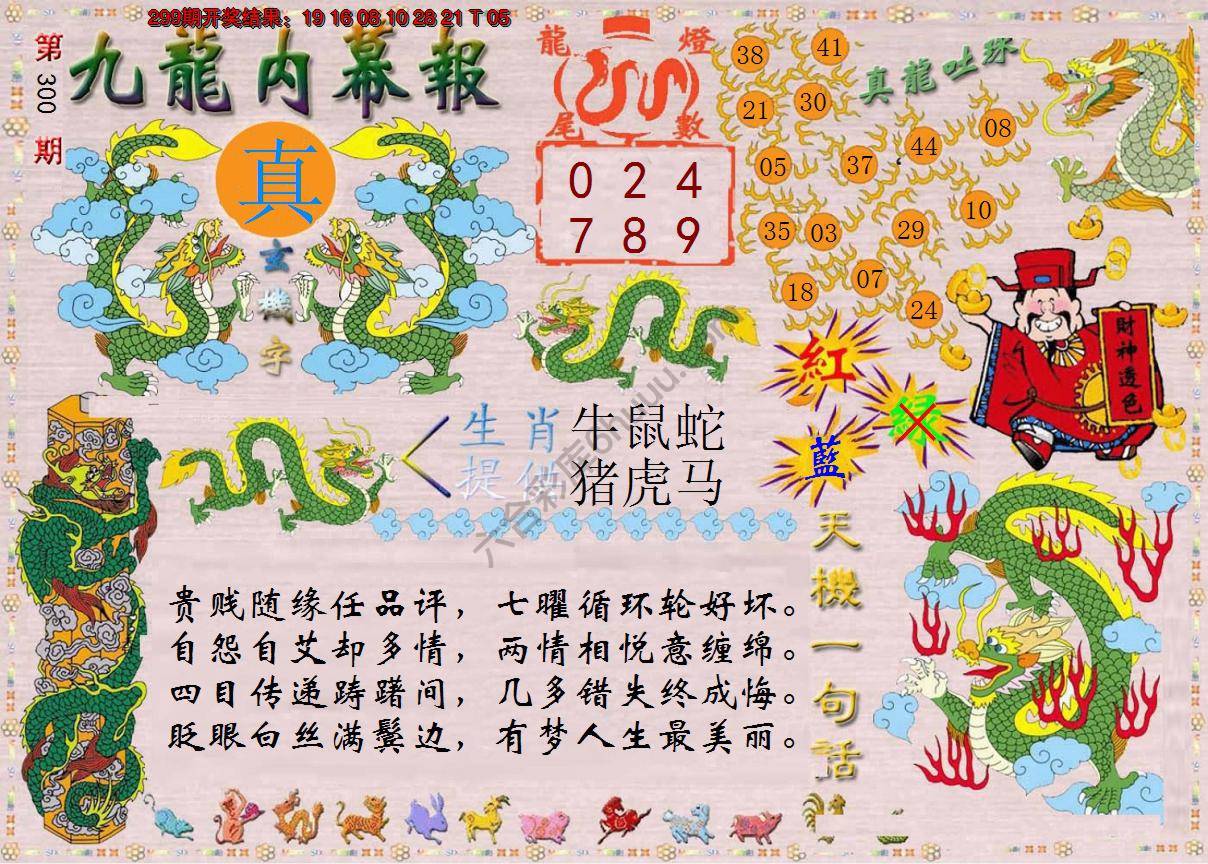 299期开奖结果：19 16 08 10 28 21 T 05
第
300
期
九龍内幕報
真
玄
機
字
龍 燈
尾 數
0 2 4
7 8 9
真龍吐珠
38 41
21 30
05 37 44 08
35 03 29 10
18 07 24
財神透色
紅
綠
藍
生肖
提供
牛鼠蛇
猪虎马
天機一句話
贵贱随缘任品评，七曜循环轮好坏。
自怨自艾却多情，两情相悦意缠绵。
四目传递踌躇间，几多错失终成悔。
眨眼白丝满鬓边，有梦人生最美丽。